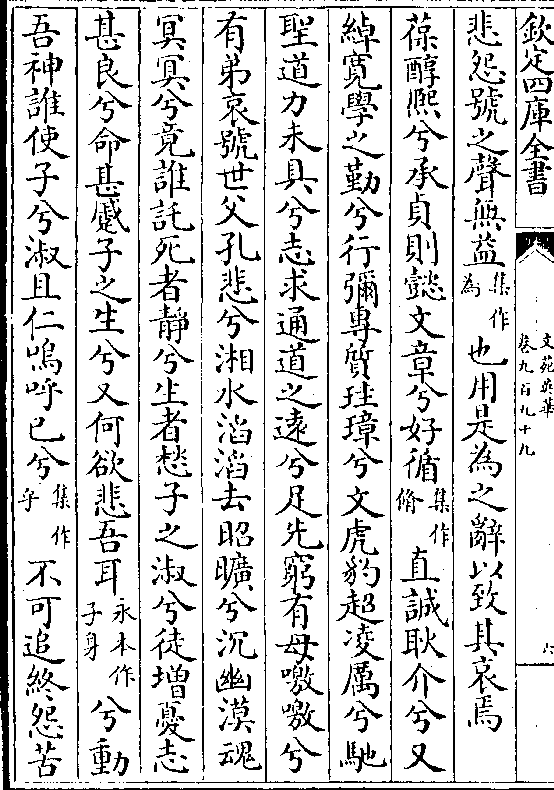 欽定四庫全書
文苑英華
卷九百九十九
六
悲怨號之聲無益集作為也用是為之辭以致其哀焉
葆醇熙兮承貞則懿文章兮好循集作脩直誠耿介兮又
綽寬學之勤兮行彌專質珪璋兮文虎豹超凌厲兮馳
聖道力未具兮志求通道之遠兮足先窮有母嗷嗷兮
有弟哀號世父孔悲兮湘水滔滔去昭曠兮沉幽漠魂
冥冥兮竟誰託死者靜兮生者愁子之淑兮徒增憂志
甚良兮命甚蹙子之生兮又何欲悲吾耳永本作子身兮動
吾神誰使子兮淑且仁嗚呼已兮集作乎不可追終怨苦